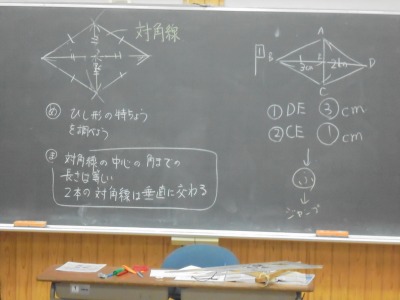 対角線
め ひし形の特ちょう
を調べよう
ま 対角線の中心の角までの
長さは等しい
2本の対角線は垂直に交わる
1
A
B
D
C
3cm
E
2cm
① DE ③cm
② CE ①cm
↓
ふ
↓
ジャンプ